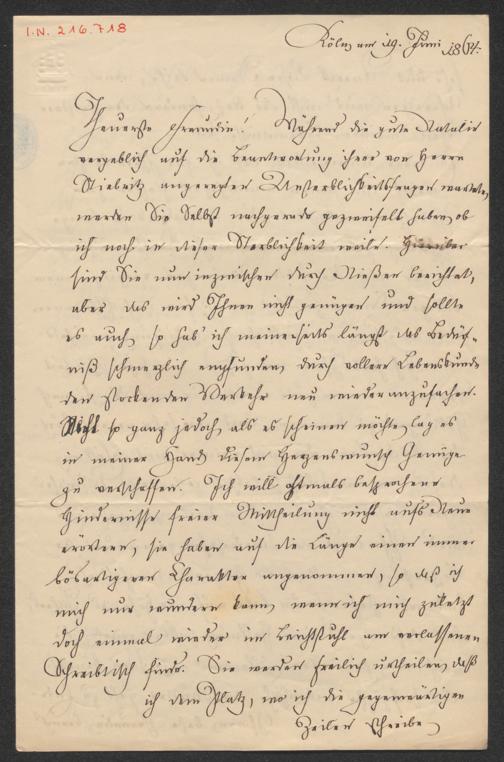 I.N. 216.718
Köln am 19. Juni 1864.
Theuerste Freundin! Während die gute Natalie
vergeblich auf die Beantwortung ihrer von Herrn
Stiebritz angeregten Unsterblichkeitsfragen wartete,
werden Sie Selbst nachgerade gezweifelt haben, ob
ich noch in dieser Sterblichkeit weile. Hierüber
sind Sie nun inzwischen durch Nießen berichtet,
aber das wird Ihnen nicht genügen und sollte
es auch, so hab' ich meinerseits längst das Bedürf-
niß schmerzlich empfunden, durch vollere Lebenskunde
den stockenden Verkehr neu wieder anzufachen.
Nicht so ganz jedoch, als es scheinen möchte, lag es
in meiner Hand diesem Herzenswunsch Genüge
zu verschaffen. Ich will oftmals besprochene
Hindernisse freier Mittheilung nicht aufs Neue
erörtern, sie haben auf die Länge einen immer
bösartigeren Charakter angenommen, so daß ich
mich nur wundern kann, wenn ich mich zuletzt
doch einmal wieder im Beichtstuhl am verlassenen
Schreibtisch finde. Sie werden freilich urtheilen, daß
ich den Platz, wo ich die gegenwärtigen
Zeilen schreibe,